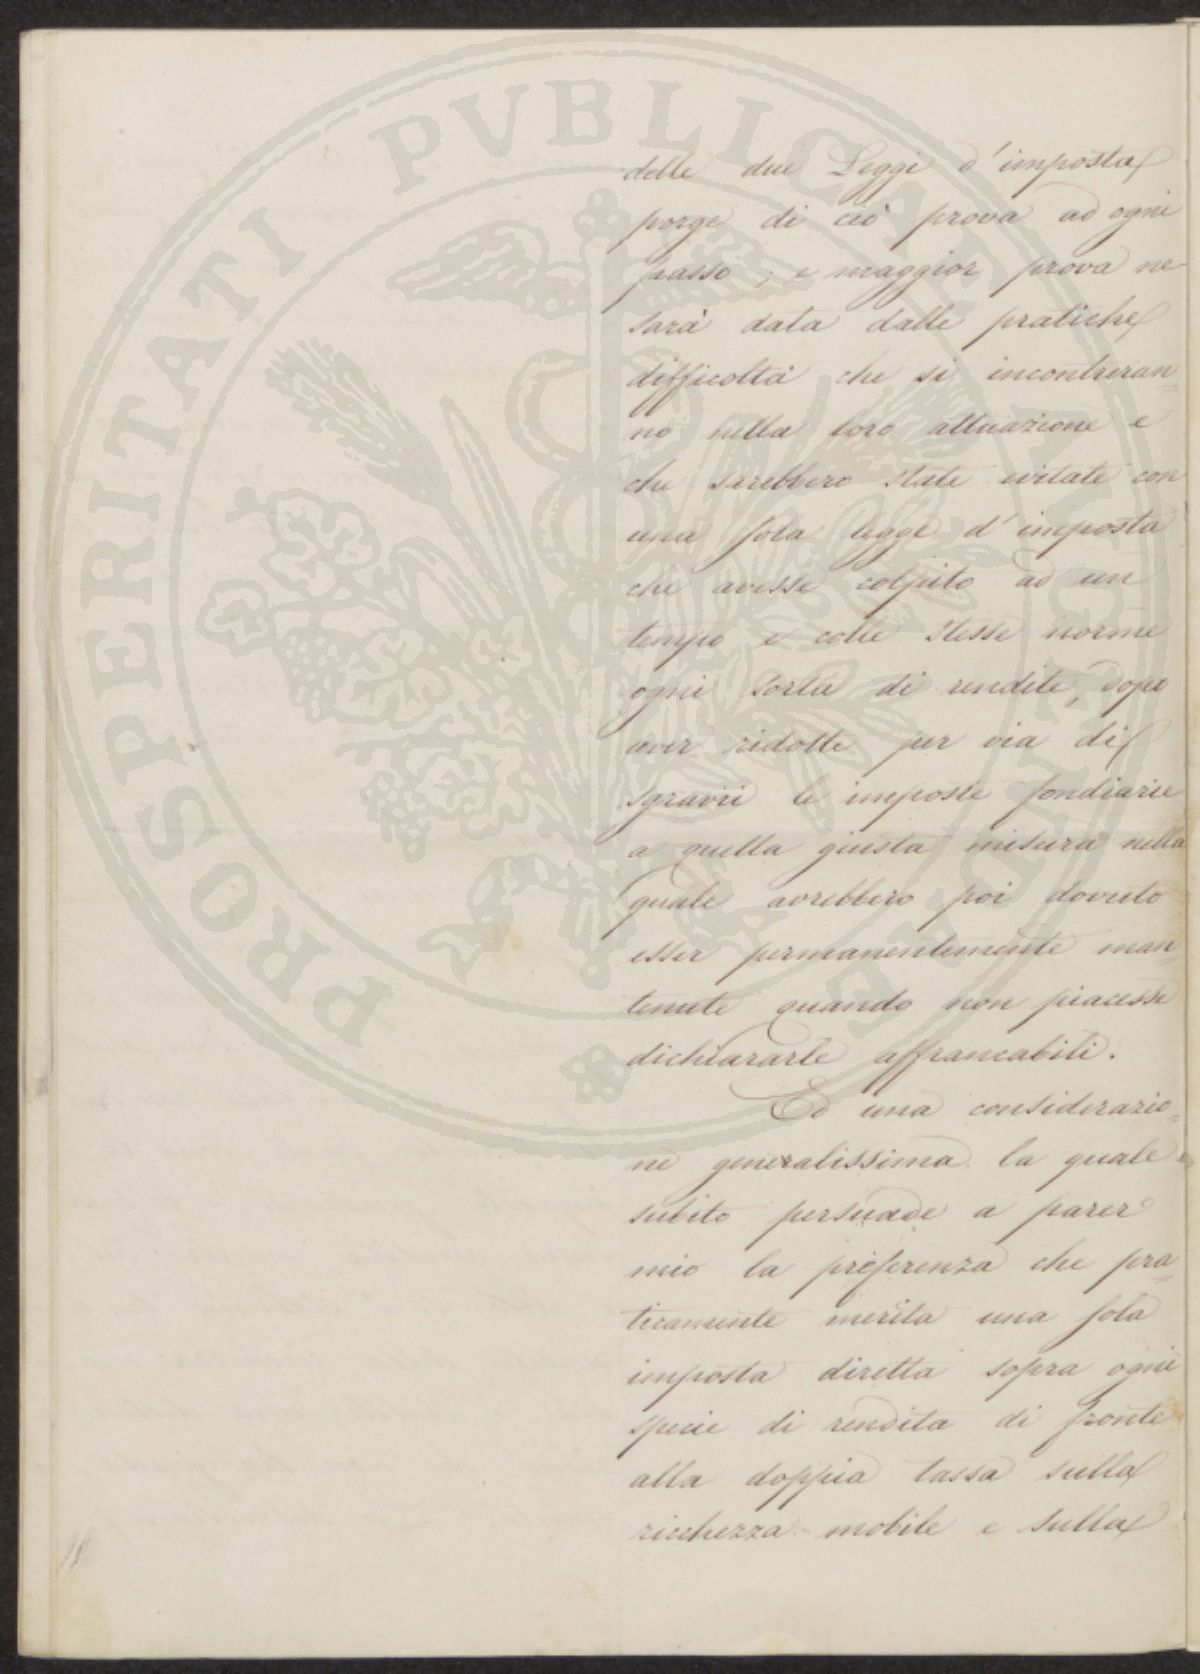 delle due Leggi d'imposta
porge di ciò prova ad ogni
passo; e maggior prova ne
sarà data dalle pratiche
difficoltà che si incontreran=
no nella loro attuazione e
che sarebbero state evitate con
una sola legge d'imposta
che avesse colpito ad un
tempo e colle stesse norme
ogni sorta di rendite, dopo
aver ridotte per via di
sgravii le imposte fondiarie
a quella giusta misura nella
quale avrebbero poi dovuto
esser permanentemente man=
tenute quando non piacesse
dichiararle affrancabili.
Ed una considerazio=
ne generalissima la quale
subito persuade a parer
mio la preferenza che pra=
ticamente merita una sola
imposta diretta sopra ogni
specie di rendita di fronte
alla doppia tassa sulla
ricchezza mobile e sulla
PROSPERITATI PVBLICAE